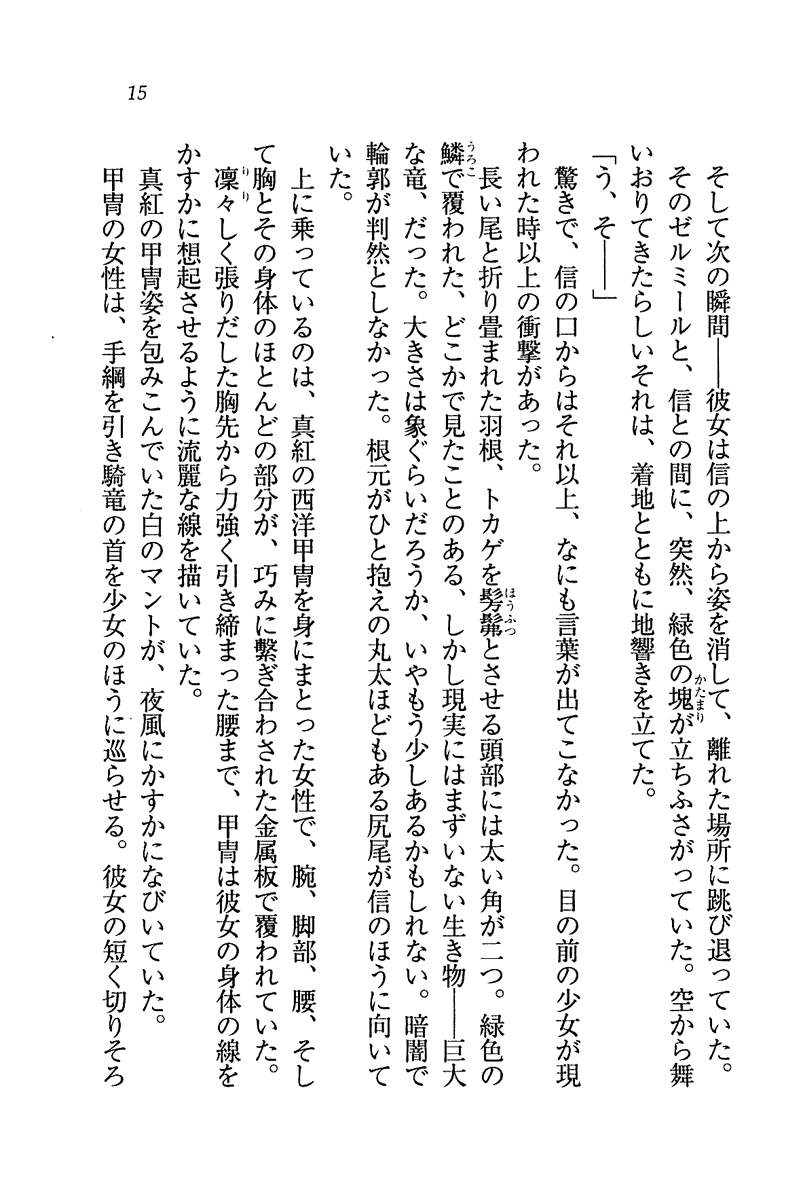 15
そして次の瞬間――彼女は信の上から姿を消して、離れた場所に跳び退っていた。
そのゼルミールと、信との間に、突然、緑色の塊が立ちふさがっていた。空から舞
いおりてきたらしいそれは、着地とともに地響きを立てた。
「う、そ――」
驚きで、信の口からはそれ以上、なにも言葉が出てこなかった。目の前の少女が現
われた時以上の衝撃があった。
長い尾と折り畳まれた羽根、トカゲを髣髴とさせる頭部には太い角が二つ。緑色の
鱗で覆われた、どこかで見たことのある、しかし現実にはまずいない生き物――巨大
な竜、だった。大きさは象ぐらいだろうか、いやもう少しあるかもしれない。暗闇で
輪郭が判然としなかった。根元がひと抱えの丸太ほどもある尻尾が信のほうに向いて
いた。
上に乗っているのは、真紅の西洋甲冑を身にまとった女性で、腕、脚部、腰、そし
て胸とその身体のほとんどの部分が、巧みに繋ぎ合わされた金属板で覆われていた。
凜々しく張りだした胸先から力強く引き締まった腰まで、甲冑は彼女の身体の線を
かすかに想起させるように流麗な線を描いていた。
真紅の甲冑姿を包みこんでいた白のマントが、夜風にかすかになびいていた。
甲冑の女性は、手綱を引き騎竜の首を少女のほうに巡らせる。彼女の短く切りそろ